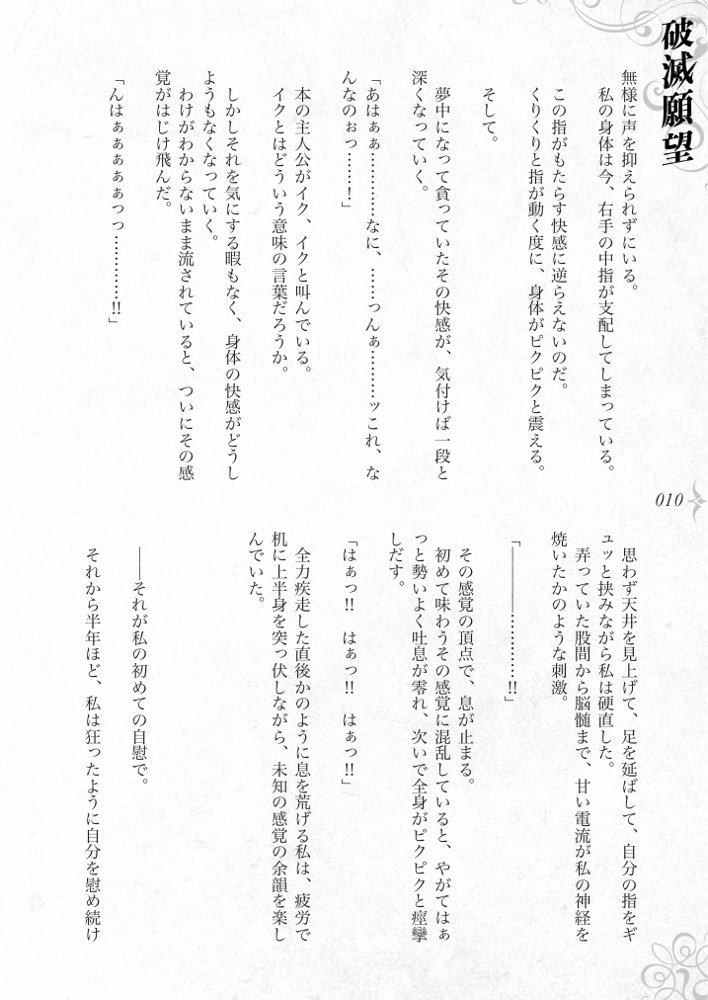 破滅願望
無様に声を抑えられずにいる。
私の身体は今、右手の中指が支配してしまっている。
この指がもたらす快感に逆らえないのだ。
くりくりと指が動く度に、身体がピクピクと震える。
そして。
夢中になって貪っていたその快感が、気付けば一段と
深くなっていく。
「あはぁぁ…………なに、……っんぁ………ッこれ、な
んなのぉっ……!」
本の主人公がイク、イクと叫んでいる。
イクとはどういう意味の言葉だろうか。
しかしそれを気にする暇もなく、身体の快感がどうし
ようもなくなっていく。
わけがわからないまま流されていると、ついにその感
覚がはじけ飛んだ。
「んはぁぁぁぁぁっっ…………!!」
010
思わず天井を見上げて、足を延ばして、自分の指をギ
ュッと挟みながら私は硬直した。
弄っていた股間から脳髄まで、甘い電流が私の神経を
焼いたかのような刺激。
「――――…………!!」
その感覚の頂点で、息が止まる。
初めて味わうその感覚に混乱していると、やがてはぁ
っと勢いよく吐息が零れ、次いで全身がピクピクと痙攣
しだす。
「はぁっ!! はぁっ!! はぁっ!!」
全力疾走した直後かのように息を荒げる私は、疲労で
机に上半身を突っ伏しながら、未知の感覚の余韻を楽し
んでいた。
――それが私の初めての自慰で。
それから半年ほど、私は狂ったように自分を慰め続け